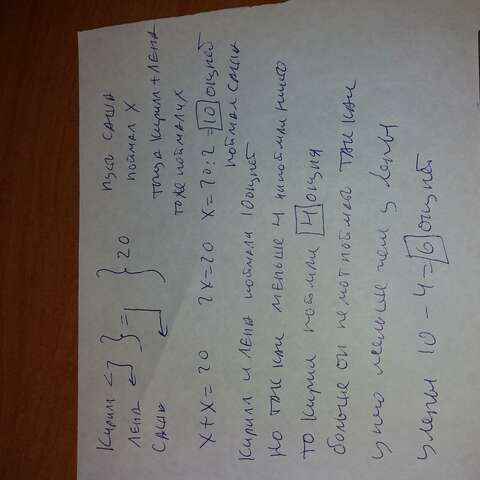 Кирилл < } = } 20
Лена
Саша
пусть Саша
поймал X
тогда Кирилл + Лена
тоже поймали X
X + X = 20 2X = 20 X = 20 : 2 = 10 окуней
поймал Саша
Кирилл и Лена поймали 10 окуней
но так как меньше 4 не поймал никто
то Кирилл поймал 4 окуня
больше он не мог поймать так как
у него меньше чем у Лены
у Лены 10 - 4 = 6 окуней